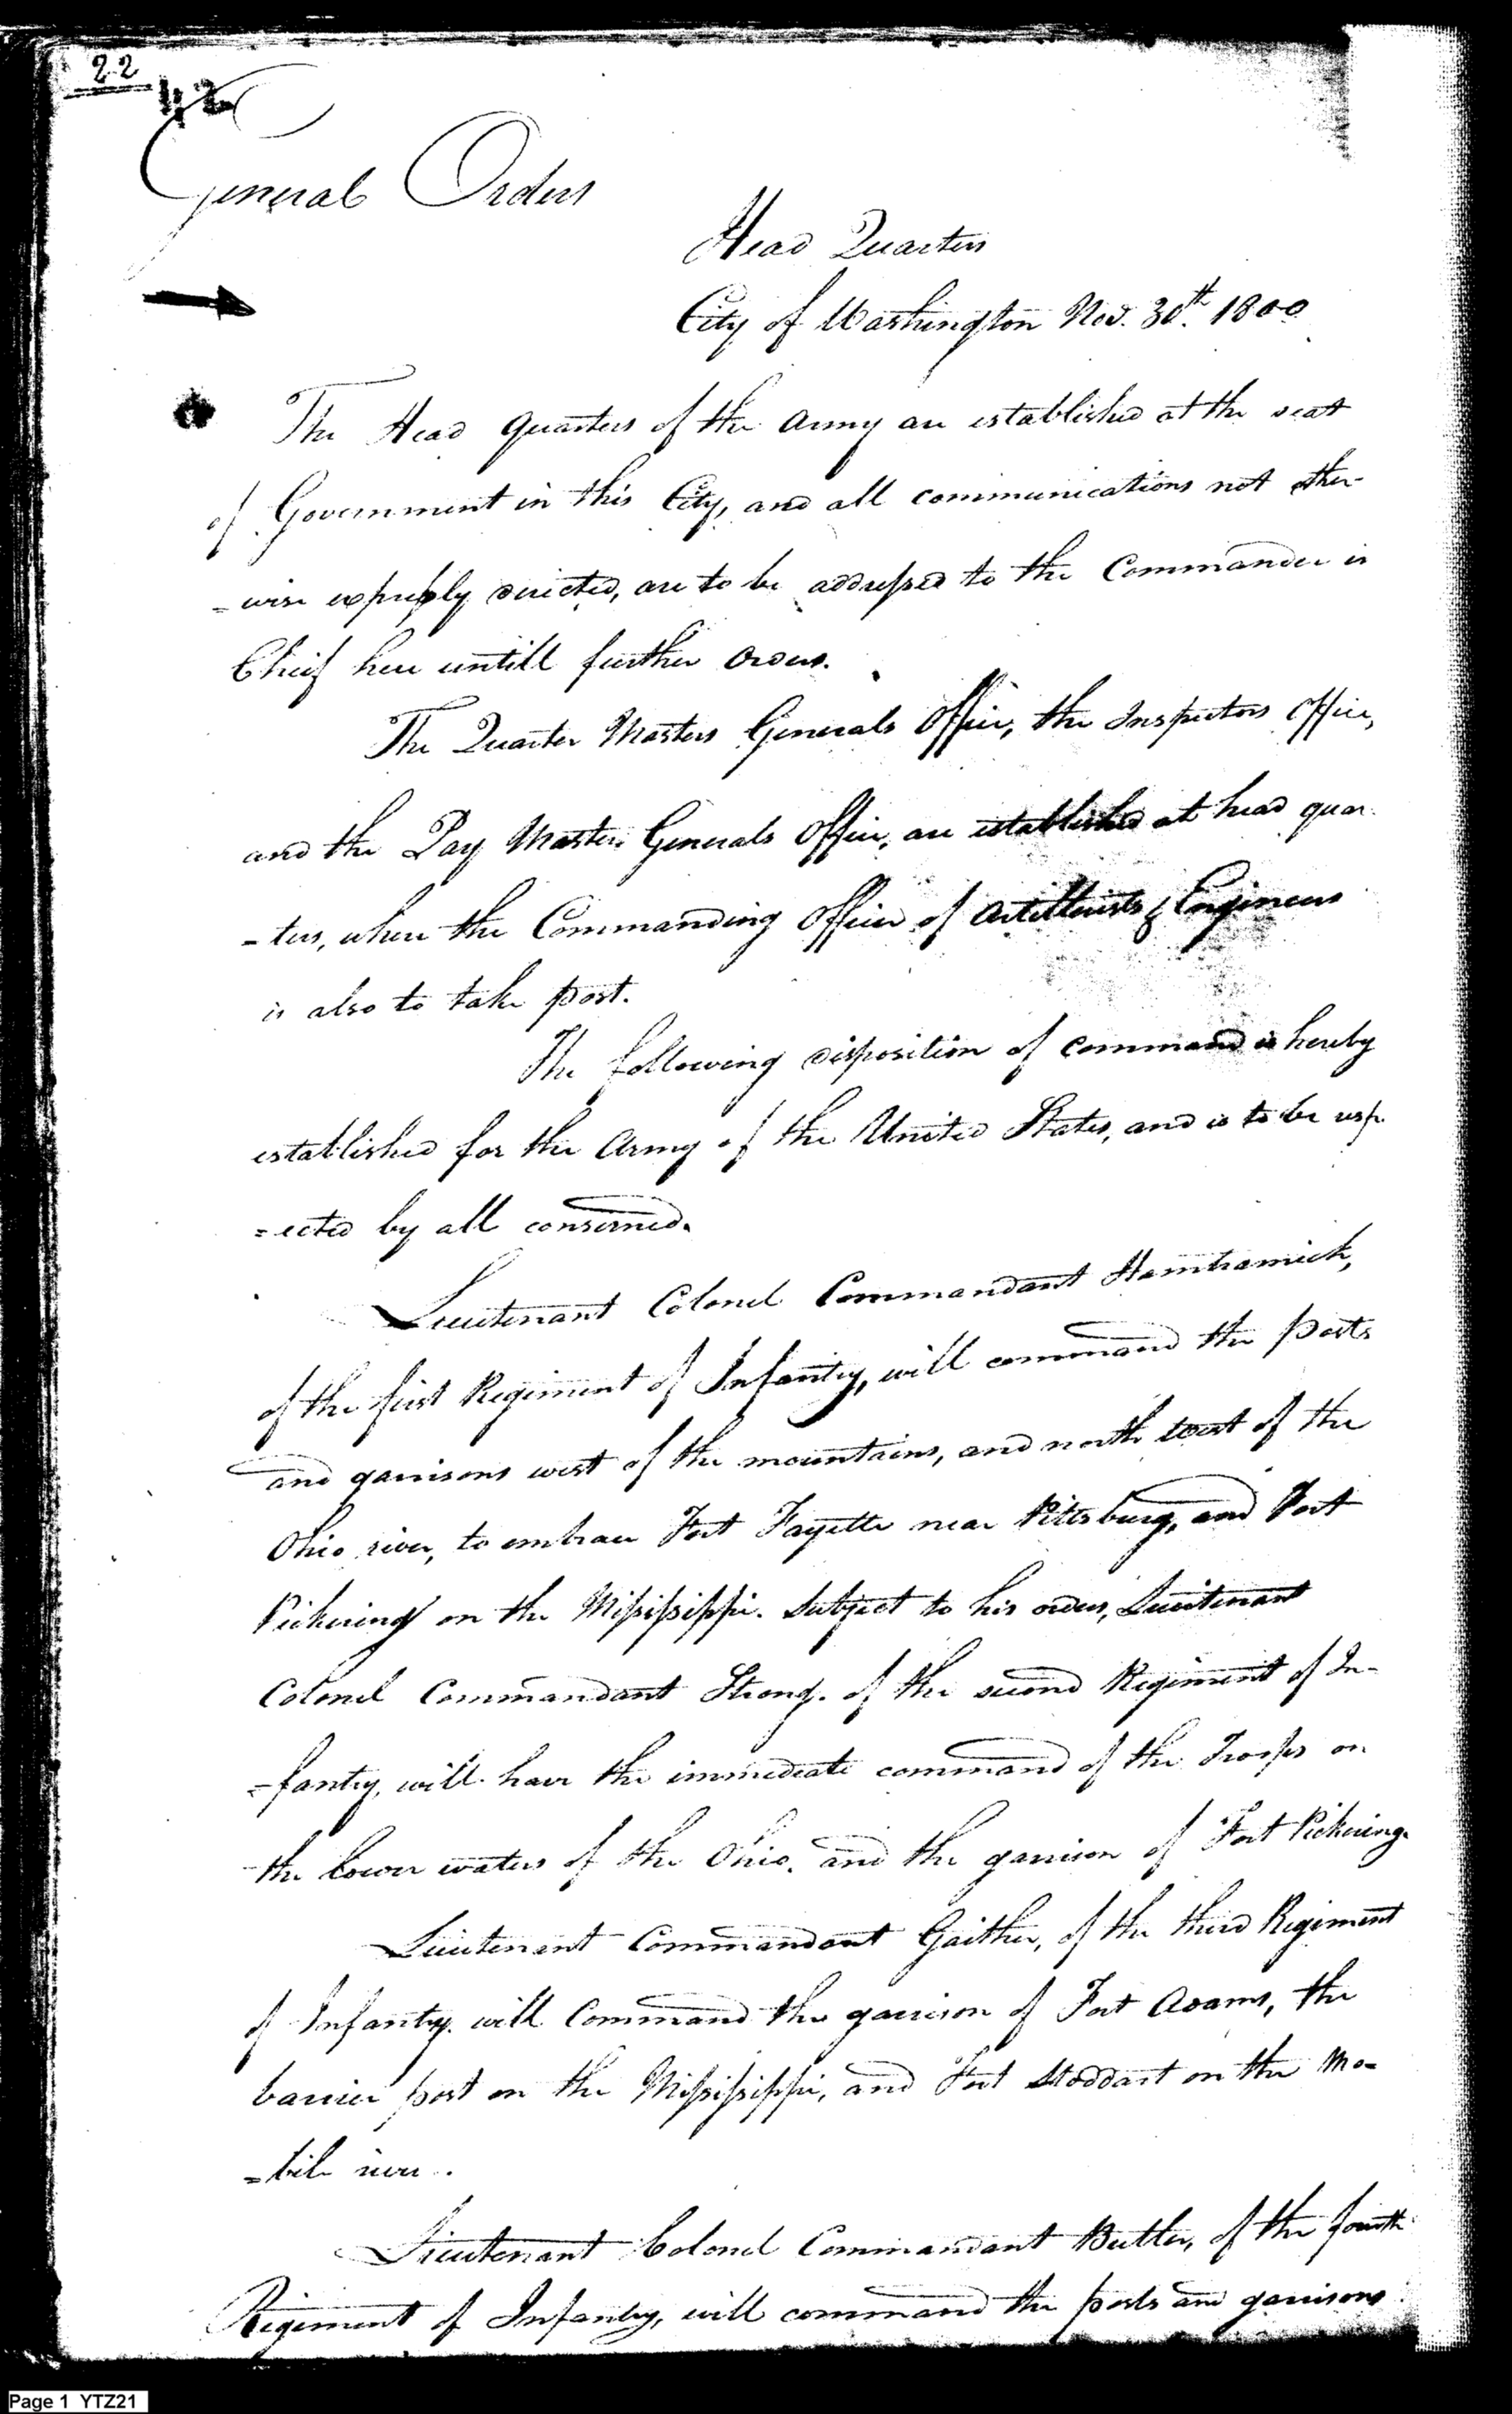 22
42
General Orders
Head Quarters
City of Washington Nov. 30th. 1800
The Head quarters of the Army are established at the seat
of Government in this City, and all communications not other-
-wise expressly directed, are to be addressed to the Commander in
Chief here untill further orders.
The Quarter Masters Generals Office, the Inspectors Office,
and the Pay Masters Generals Office, are established at head quar-
-ters, where the Commanding Officer of Artillerists & Engineers
is also to take post.
The following disposition of command is hereby
established for the Army of the United States, and is to be resp
=ected by all conserned.
Lieutenant Colonel Commandant Hamtramick,
of the first Regiment of Infantry, will command the posts
and garrisons west of the mountains, and north west of the
Ohio river, to embrace Fort Fayette near Pittsburg, and Fort
Pickering on the Missisippi. Subject to his orders, Lieutenant
Colonel Commandant Strong. of the second Regiment of In-
-fantry, will have the immediate command of the Troops on
the lower waters of the Ohio, and the garrison of Fort Pickering.
Lieutenant Commandant Gaither, of the third Regiment
of Infantry. will Command the garrison of Fort Adams, the
barrier post on the Missisippi, and Fort Stoddart on the Mo-
=bile river.
Lieutenant Colonel Commandant Butler, of the fourth
Regiment of Infantry, will command the posts and garrisons
Page 1 YTZ21